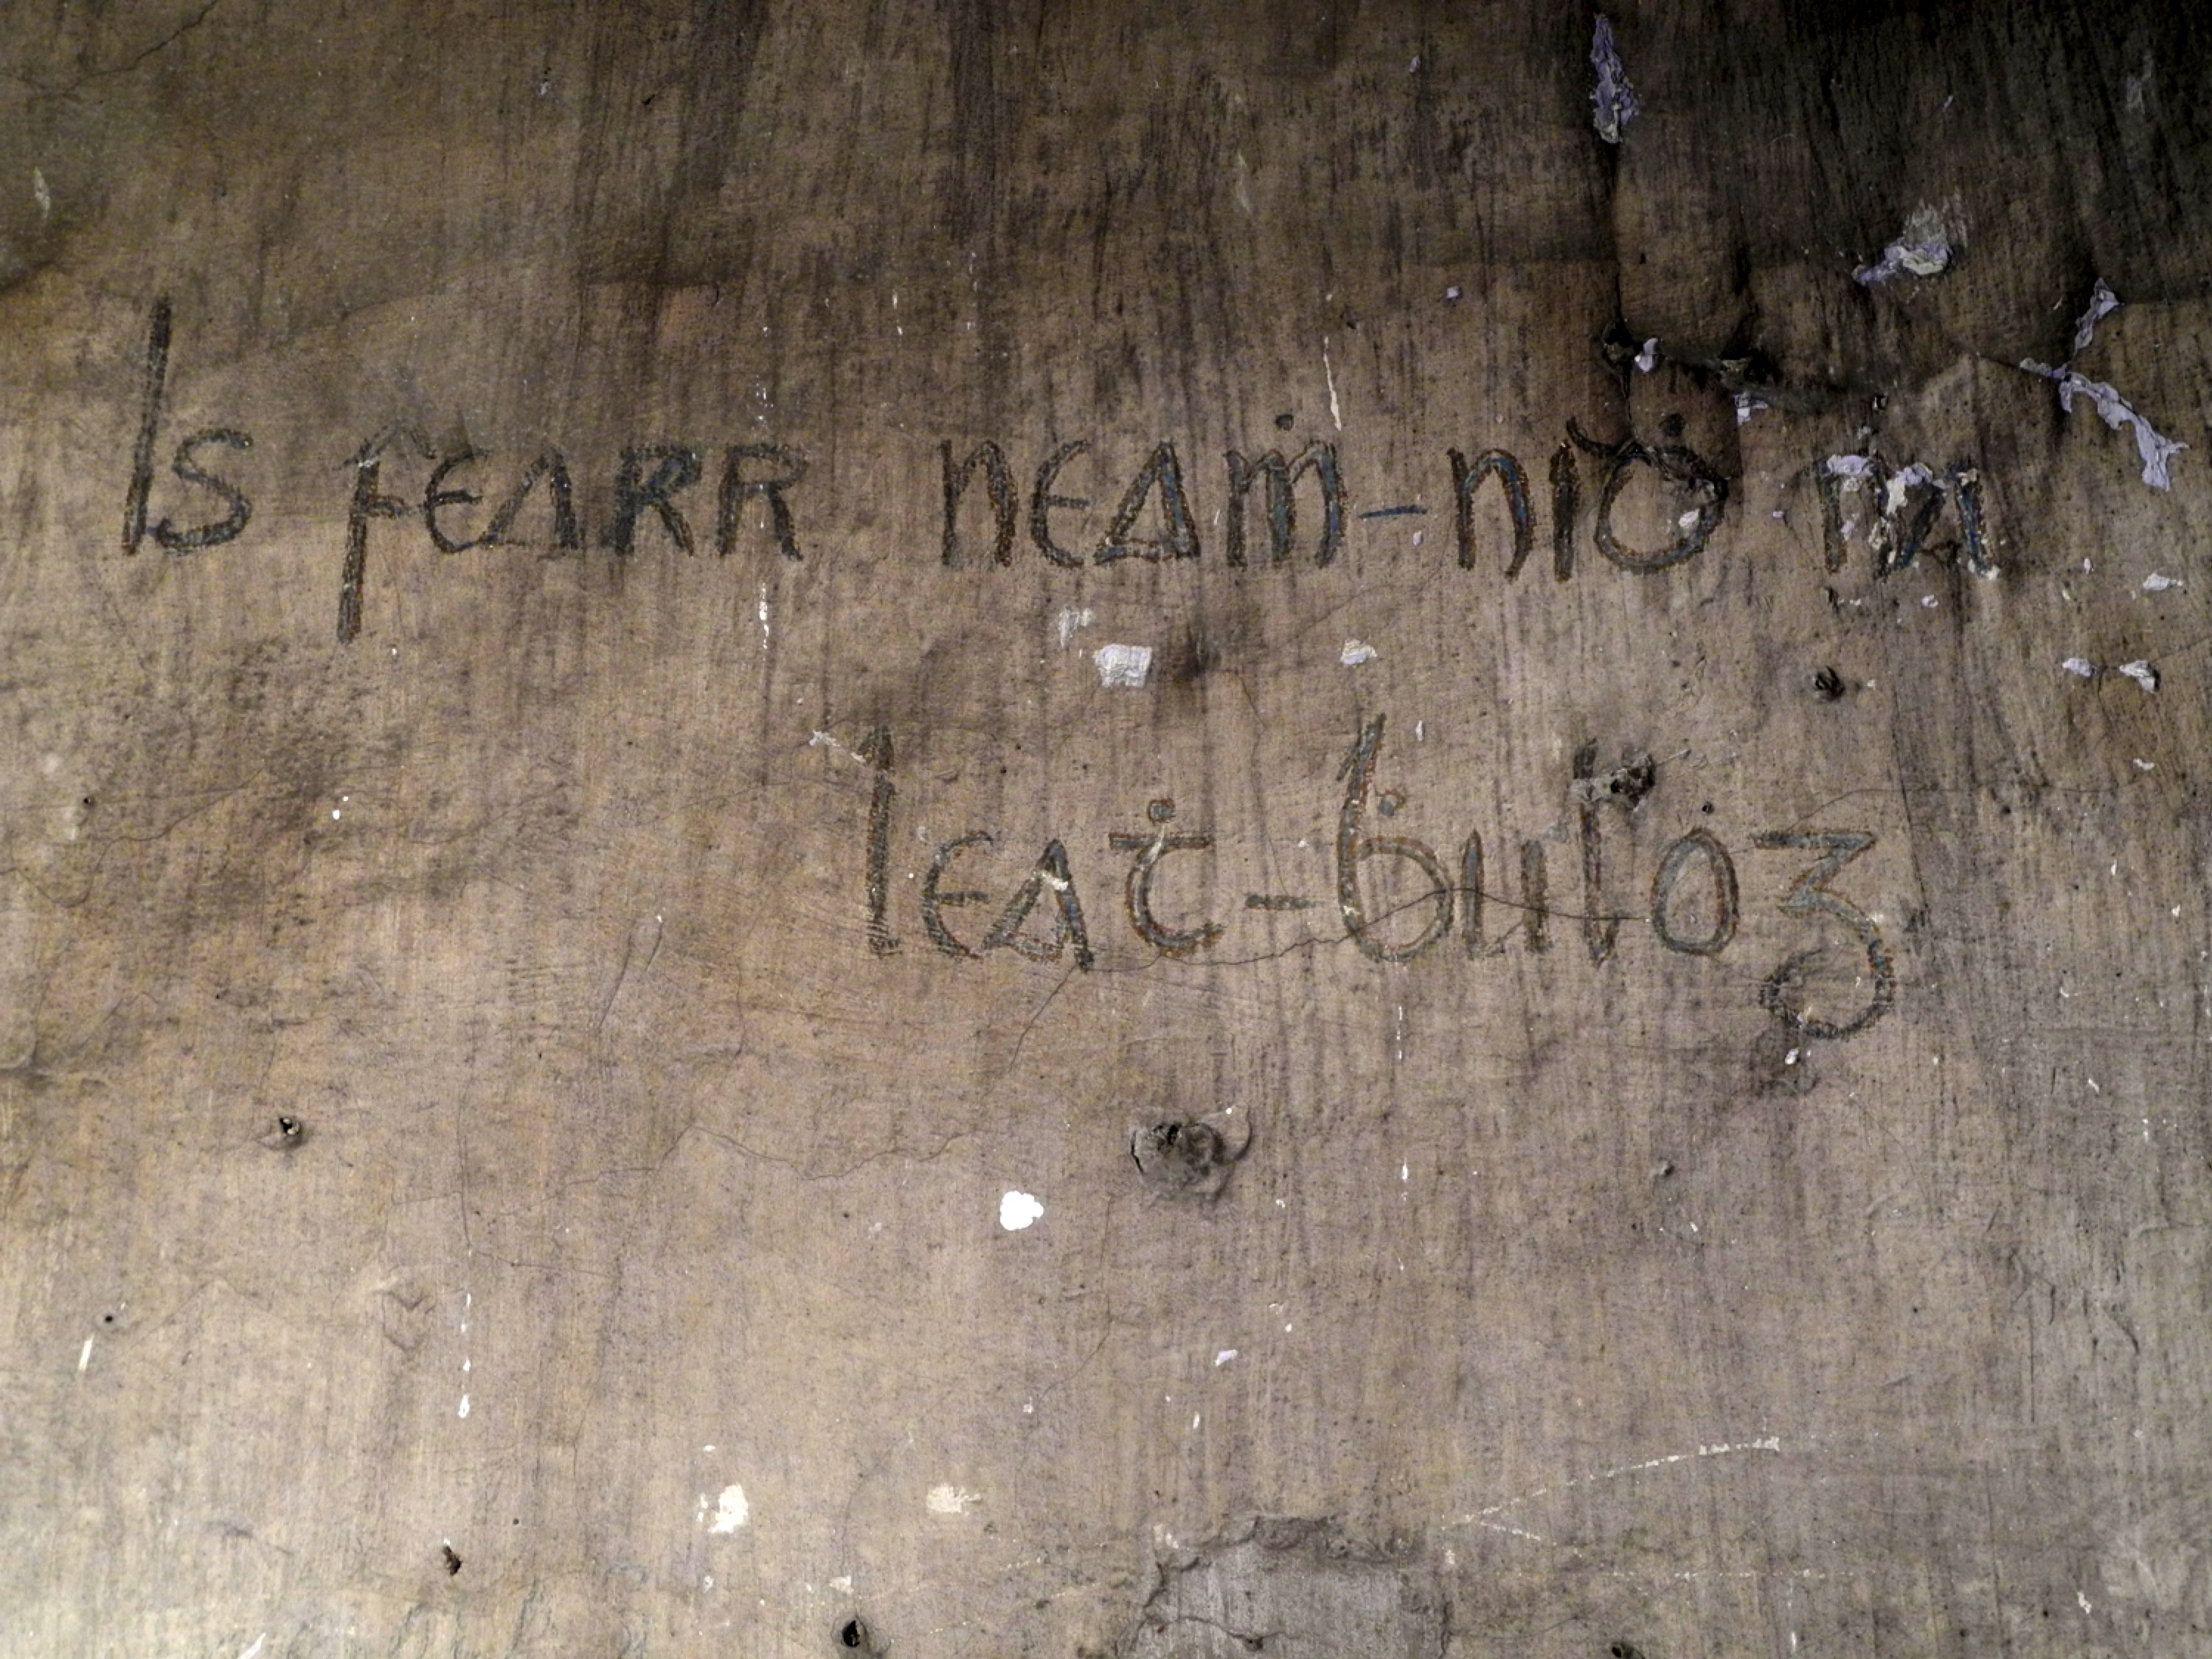 Is fearr neaṁ-niḋ na
leaṫ-ḃuilog